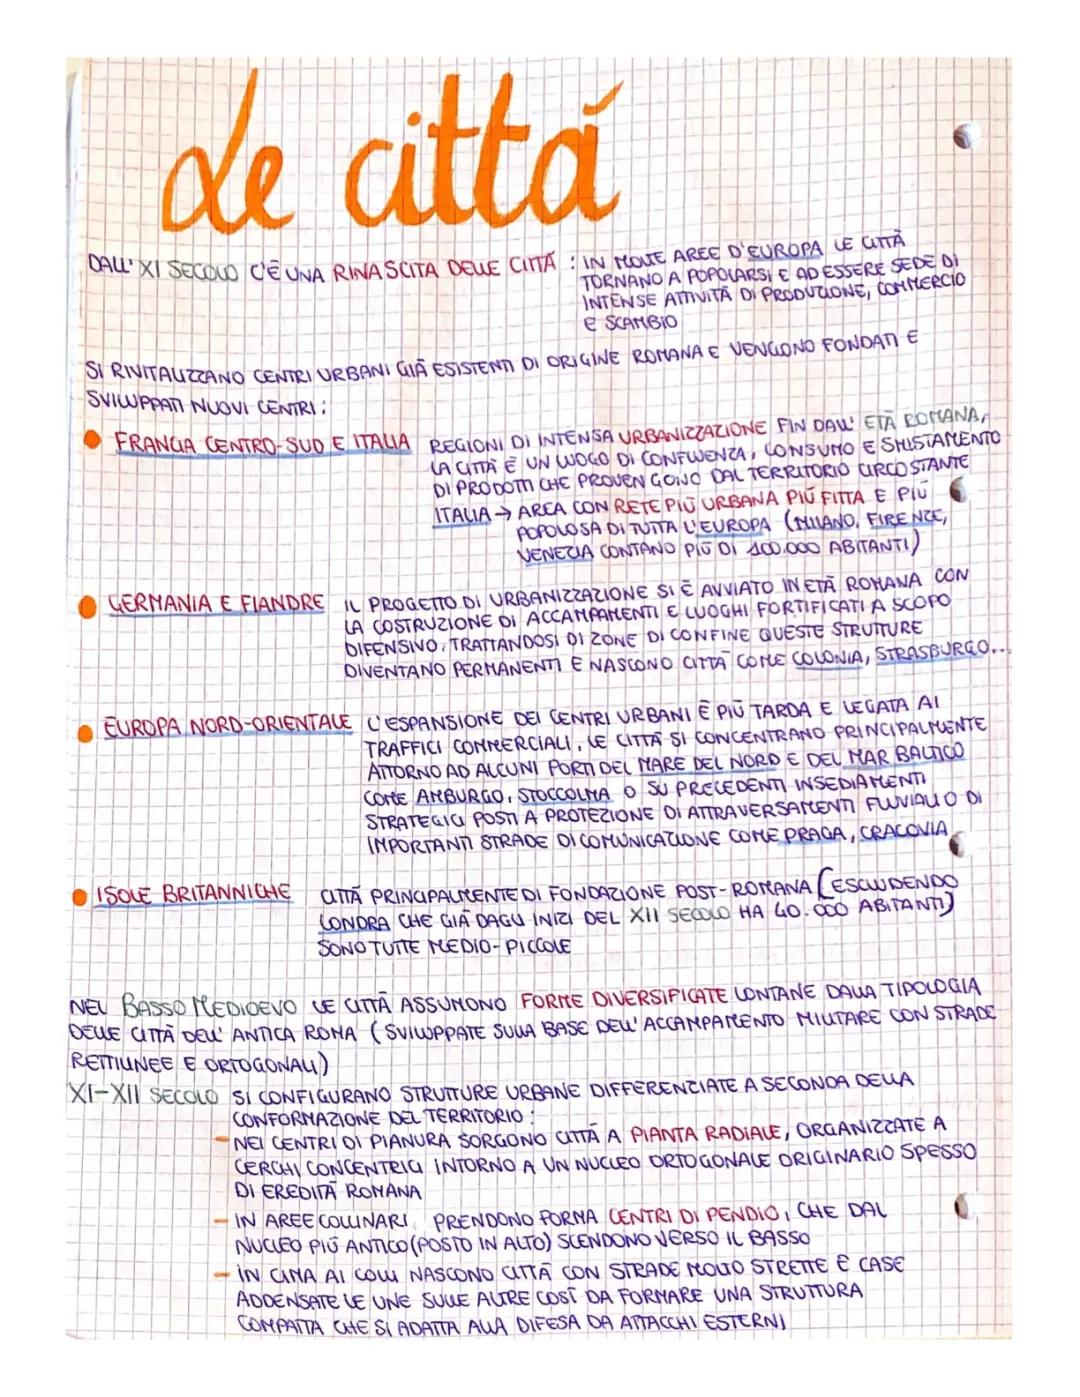 Le cittá
DALL' XI SECOLO C'È UNA RINASCITA DELLE CITTÀ : IN MOLTE AREE D'EUROPA LE CITTÀ
TORNANO A POPOLARSI E AD ESSERE SEDE DI
INTENSE ATTIVITÀ DI PRODUZIONE, COMMERCIO
E SCAMBIO
SI RIVITALIZZANO CENTRI URBANI GIÀ ESISTENTI DI ORIGINE ROMANA E VENGONO FONDATI E
SVILUPPATI NUOVI CENTRI:
FRANCIA CENTRO-SUD E ITALIA REGIONI DI INTENSA URBANIZZAZIONE FIN DALL' ETÀ ROMANA,
LA CITTÀ È UN LUOGO DI CONFLUENZA, CONSUMO E SMISTAMENTO
DI PRODOTTI CHE PROVENGONO DAL TERRITORIO CIRCOSTANTE
ITALIA → AREA CON RETE PIÙ URBANA PIÙ FITTA E PIÙ
POPOLOSA DI TUTTA L'EUROPA (MILANO, FIRENZE,
VENEZIA CONTANO PIÙ DI 100.000 ABITANTI)
GERMANIA E FIANDRE IL PROGETTO DI URBANIZZAZIONE SI È AVVIATO IN ETÀ ROMANA CON
LA COSTRUZIONE DI ACCAMPAMENTI E LUOGHI FORTIFICATI A SCOPO
DIFENSIVO, TRATTANDOSI DI ZONE DI CONFINE QUESTE STRUTTURE
DIVENTANO PERMANENTI E NASCONO CITTÀ COME COLONIA, STRASBURGO...
EUROPA NORD-ORIENTALE L'ESPANSIONE DEI CENTRI URBANI È PIÙ TARDA E LEGATA AI
TRAFFICI COMMERCIALI, LE CITTÀ SI CONCENTRANO PRINCIPALMENTE
ATTORNO AD ALCUNI PORTI DEL MARE DEL NORD E DEL MAR BALTICO
COME AMBURGO, STOCCOLMA O SU PRECEDENTI INSEDIAMENTI
STRATEGICI POSTI A PROTEZIONE DI ATTRAVERSAMENTI FLUVIALI O DI
IMPORTANTI STRADE DI COMUNICAZIONE COME PRAGA, CRACOVIA
ISOLE BRITANNICHE CITTÀ PRINCIPALMENTE DI FONDAZIONE POST-ROMANA (ESCLUDENDO
LONDRA CHE GIÀ DAGLI INIZI DEL XII SECOLO HA 40.000 ABITANTI)
SONO TUTTE MEDIO-PICCOLE
NEL BASSO MEDIOEVO LE CITTÀ ASSUMONO FORME DIVERSIFICATE LONTANE DALLA TIPOLOGIA
DELLE CITTÀ DELL' ANTICA ROMA (SVILUPPATE SULLA BASE DELL' ACCAMPAMENTO MILITARE CON STRADE
RETTILINEE E ORTOGONALI)
XI-XII SECOLO SI CONFIGURANO STRUTTURE URBANE DIFFERENZIATE A SECONDA DELLA
CONFORMAZIONE DEL TERRITORIO:
- NEI CENTRI DI PIANURA SORGONO CITTÀ A PIANTA RADIALE, ORGANIZZATE A
CERCHI CONCENTRICI INTORNO A UN NUCLEO ORTOGONALE ORIGINARIO SPESSO
DI EREDITÀ ROMANA
- IN AREE COLLINARI PRENDONO FORMA CENTRI DI PENDIO, CHE DAL
NUCLEO PIÙ ANTICO (POSTO IN ALTO) SCENDONO VERSO IL BASSO
- IN CIMA AI COLLI NASCONO CITTÀ CON STRADE MOLTO STRETTE E CASE
ADDENSATE LE UNE SULLE ALTRE COSÌ DA FORMARE UNA STRUTTURA
COMPATTA CHE SI ADATTA ALLA DIFESA DA ATTACCHI ESTERNI